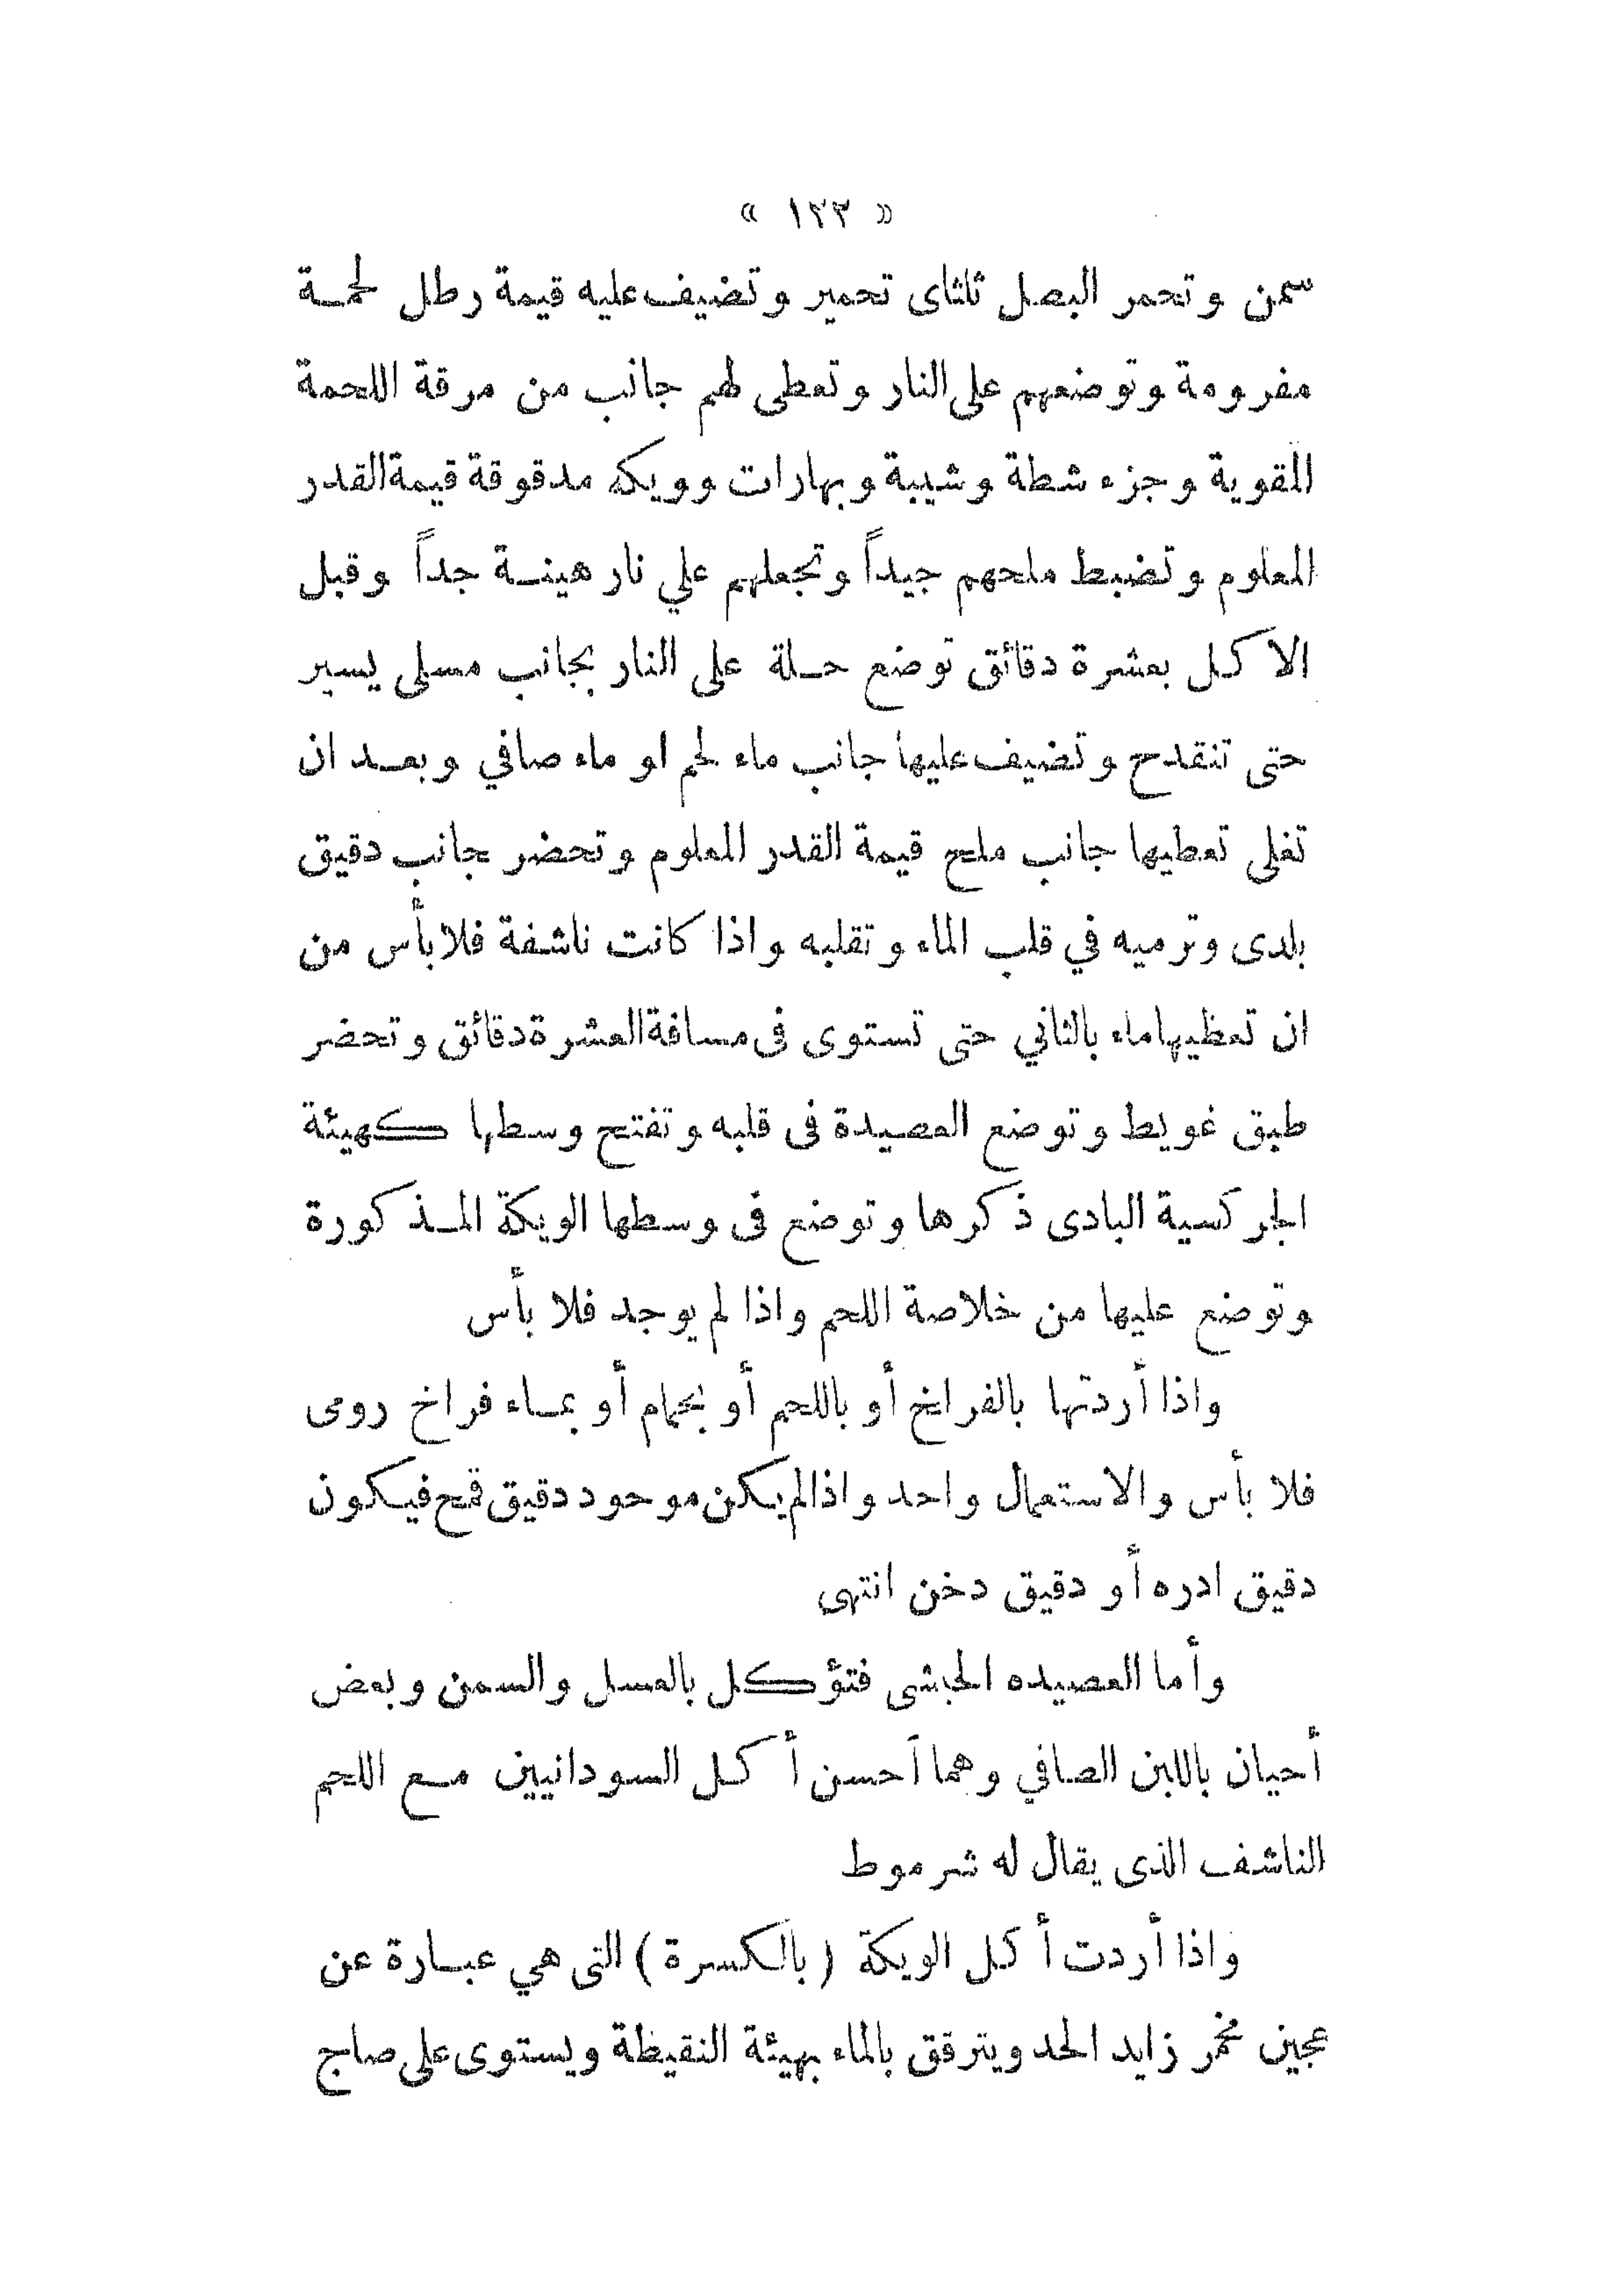 « ١٢٣ »
سمن وتحمر البصل ثلثاى تحمير وتضيف عليه قيمة رطل لحمة
مفرومة وتوضعهم على النار وتعطى لهم جانب من مرقة اللحمة
المقوية وجزء شطة وشيبة وبهارات وويكه مدقوقة قيمة القدر
المعلوم وتضبط ملحهم جيداً وتجعلهم علي نار هينة جداً وقبل
الاكل بعشرة دقائق توضع حلة على النار بجانب مسلى يسير
حتى تنقدح وتضيف عليها جانب ماء لحم او ماء صافي وبعد ان
تغلى تعطيها جانب ملح قيمة القدر المعلوم وتحضر جانب دقيق
بلدى وترميه في قلب الماء وتقلبه واذا كانت ناشفة فلا بأس من
ان تعظيها ماء بالثاني حتى تستوى فى مسافة العشرة دقائق وتحضر
طبق غويط وتوضع العصيدة فى قلبه وتفتح وسطها كهيئة
الجركسية البادى ذكرها وتوضع فى وسطها الويكة المذكورة
وتوضع عليها من خلاصة اللحم واذا لم يوجد فلا بأس
واذا أردتها بالفراخ أو باللحم أو بحمام أو بماء فراخ رومى
فلا بأس والاستعمال واحد واذا لم يكن موحود دقيق قمح فيكون
دقيق ادره أو دقيق دخن انتهى
وأما العصيده الحبشى فتؤكل بالعسل والسمن وبعض
أحيان باللبن الصافي وهما أحسن أكل السودانيين مع اللحم
الناشف الذى يقال له شرموط
واذا أردت أكل الويكة ( بالكسرة ) التى هي عبارة عن
عجين مخمر زايد الحد ويترقق بالماء بهيئة النقيظة ويستوى على صاج